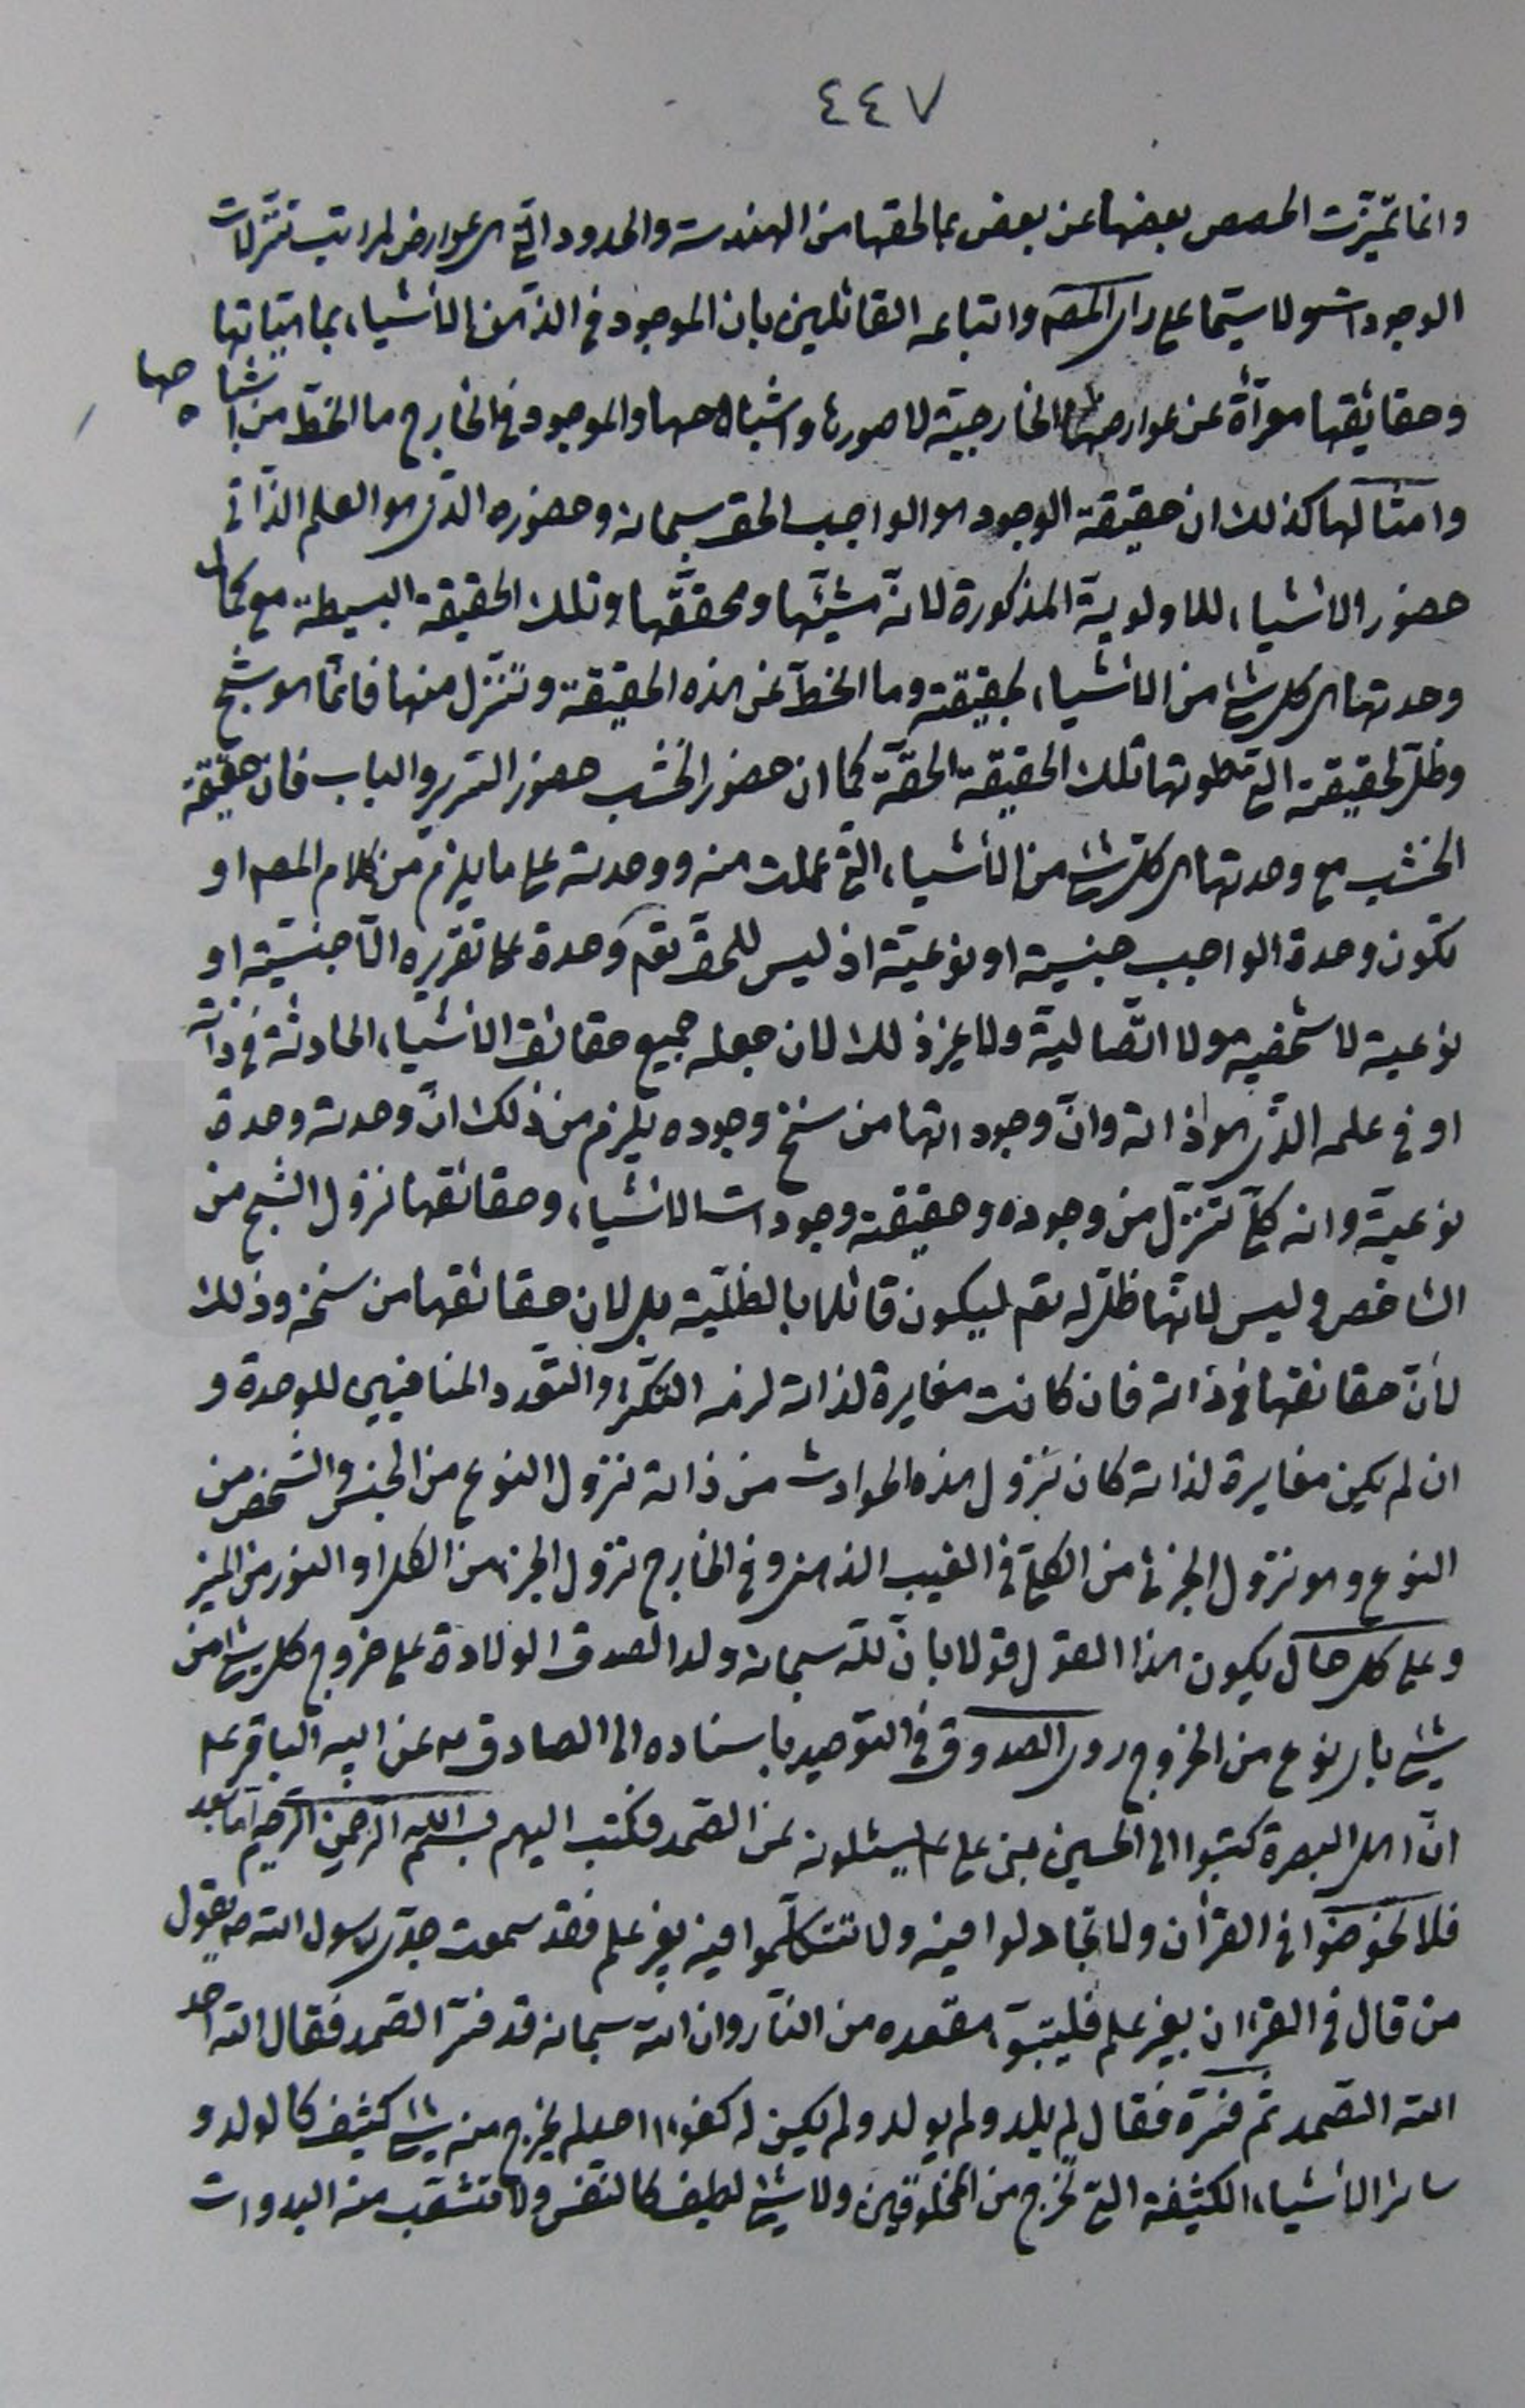 ٤٤٧
وانما تميّزت الحصص بعضها عن بعض بما لحقها من الهندسة والحدود الّتي هي عوارض لمراتب تنزّلات
الوجودات ولا سيّما على رأي المصم واتباعه القائلين بان الموجود في الذهن الأشياء بماهيّاتها
وحقائقها معرّاة عن عوارضها الخارجيّة لا صورها واشباحها والموجود في الخارج ما انحطّ من اشباحها
وامثالها كذلك ان حقيقة الوجود هو الواجب الحق سبحانه وحضوره الذي هو العلم الذاتي
حضور الاشياء للاولوية المذكورة لانه مشيّئها ومحققها وتلك الحقيقة البسيطة مع كمال
وحدتها هي كل شئ من الأشياء بحقيقته وما انحطّ عن هذه الحقيقة وتنزل منها فانما هو شبح
وظل لحقيقته التي طوتها تلك الحقيقة الحقّة كما ان حضور الخشب حضور السّرير والباب فان حقيقة
الخشب مع وحدتها هي كل شئ من الأشياء الّتي عملت منه ووحدته على ما يلزم من كلام المصم او
تكون وحدة الواجب جنسية او نوعيّة اذ ليس للحق تعم وحدة على تقريره الّا جنسيّة او
نوعية لا شخصية ولا اتّصالية ولا غير ذلك لان جعله جميع حقائق الأشياء الحادثة في ذاته
او في علمه الّذي هو ذاته وانّ وجوداتها من سنخ وجوده يلزم من ذلك انّ وحدته وحدة
نوعيّة وانه كلّي تنزل من وجوده وحقيقته وجودات الأشياء وحقائقها نزول الشبح من
الشاخص وليس لانّها ظلّ له تعم ليكون قائلا بالظلّية بل لان حقائقها من سنخه وذلك
لأنّ حقائقها في ذاته فان كانت مغايرة لذاته لزمه التكثّر والتعدد المنافيين للوحدة و
ان لم يكن مغايرة لذاته كان نزول هذه الحوادث من ذاته نزول النوع من الجنس والشخص من
النوع وهو نزول الجزئي من الكلّي في الغيب الذهني وفي الخارج نزول الجزء من الكل او النور من المنير
وعلى كل حال يكون هذا القول قولا بانّ للّه سبحانه ولدا لصدق الولادة على خروج كل شئ من
شئ باى نوع من الخروج روى الصدوق في التوحيد باسناده الى الصادق ع عن ابيه الباقر ع
انّ اهل البصرة كتبوا الى الحسين بن علي ع يسئلونه عن الصّمد فكتب اليهم بسم الله الرحمن الرحيم امّا بعد
فلا تخوضوا في القرآن ولا تجادلوا فيه ولا تتكلّموا فيه بغير علم فقد سمعت جدّي رسول الله ص يقول
من قال في القران بغير علم فليتبوّء مقعده من النّار وان الله سبحانه قد فسّر الصّمد فقال الله احد
الله الصّمد ثم فسّره فقال لم يلد ولم يولد ولم يكن له كفوا احد لم يخرج منه شئ كثيف كالولد و
سائر الأشياء الكثيفة التي تخرج من المخلوقين ولا شئ لطيف كالنفس ولا تتشعّب منه البدوات